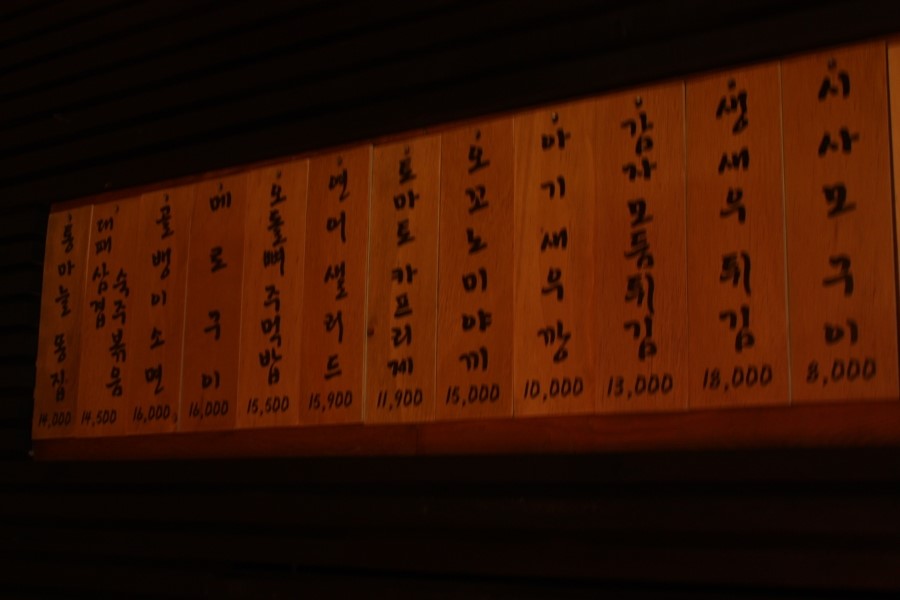 통마늘똥집
14,000
대패삼겹숙주볶음
14,500
골뱅이소면
16,000
메로구이
16,000
오돌뼈주먹밥
15,500
연어샐러드
15,900
토마토카프리제
11,900
오꼬노미야끼
15,000
아기새우깡
10,000
감자모둠튀김
13,000
생새우튀김
18,000
시사모구이
8,000